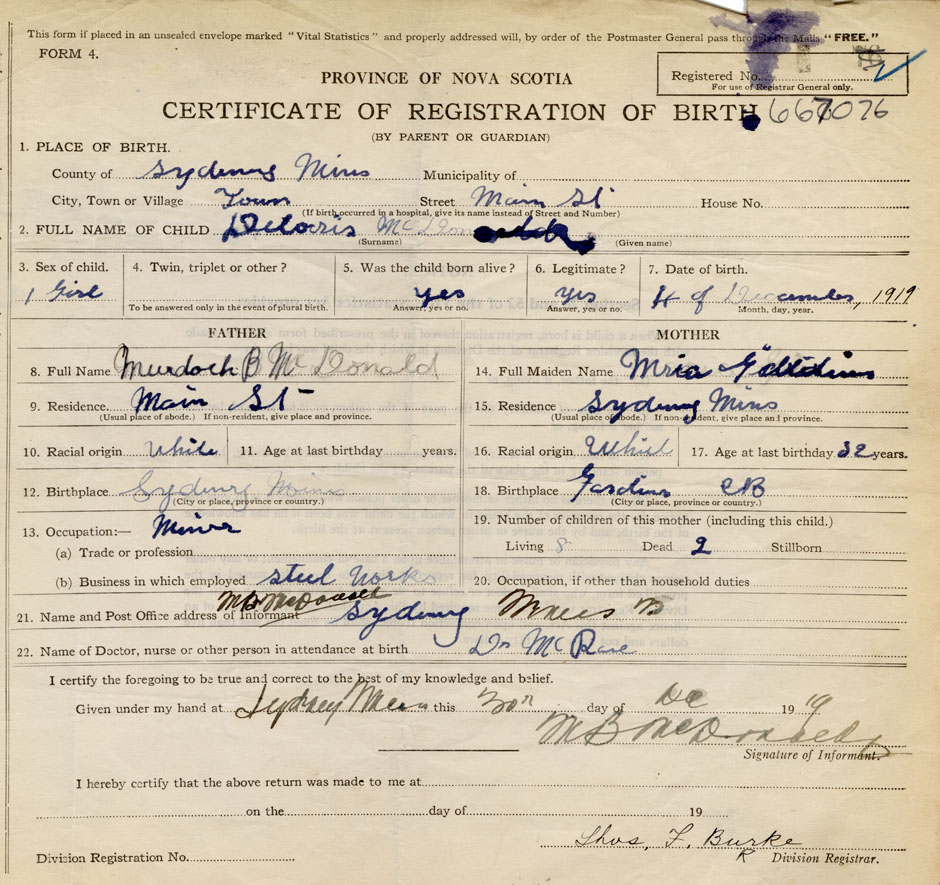 This form if placed in an unsealed envelope marked "Vital Statistics" and properly addressed will, by order of the Postmaster General pass through the Mails "FREE."
FORM 4.
PROVINCE OF NOVA SCOTIA
Registered No.
For use of Registrar General only.
CERTIFICATE OF REGISTRATION OF BIRTH 667076
(BY PARENT OR GUARDIAN)
1. PLACE OF BIRTH.
County of Sydney Mins Municipality of
City, Town or Village Town Street Main St House No.
(If birth occurred in a hospital, give its name instead of Street and Number)
2. FULL NAME OF CHILD Deloris
(Surname) (Given name)
3. Sex of child. 4. Twin, triplet or other? 5. Was the child born alive? 6. Legitimate? 7. Date of birth.
1 Girl yes yes of December, 1919
To be answered only in the event of plural birth. Answer, yes or no. Answer, yes or no. Month, day, year.
FATHER MOTHER
8. Full Name Murdoch B McDonald 14. Full Maiden Name
9. Residence Main St 15. Residence Sydney Mins
(Usual place of abode.) If non-resident, give place and province. (Usual place of abode.) If non-resident, give place and province.
10. Racial origin White 11. Age at last birthday years. 16. Racial origin Whit 17. Age at last birthday 32 years.
12. Birthplace Sydney Mins 18. Birthplace CB
(City or place, province or country.) (City or place, province or country.)
13. Occupation:— Miner 19. Number of children of this mother (including this child.)
(a) Trade or profession Living 8 Dead 2 Stillborn
(b) Business in which employed Steel Works 20. Occupation, if other than household duties
M B McDonald
21. Name and Post Office address of Informant Sydney Mines
22. Name of Doctor, nurse or other person in attendance at birth Dr McRae
I certify the foregoing to be true and correct to the best of my knowledge and belief.
Given under my hand at Sydney Mines this day of De 1919
M B McDonald
Signature of Informant.
I hereby certify that the above return was made to me at
on the day of 19
Thos. F. Burke
Division Registration No. Division Registrar.